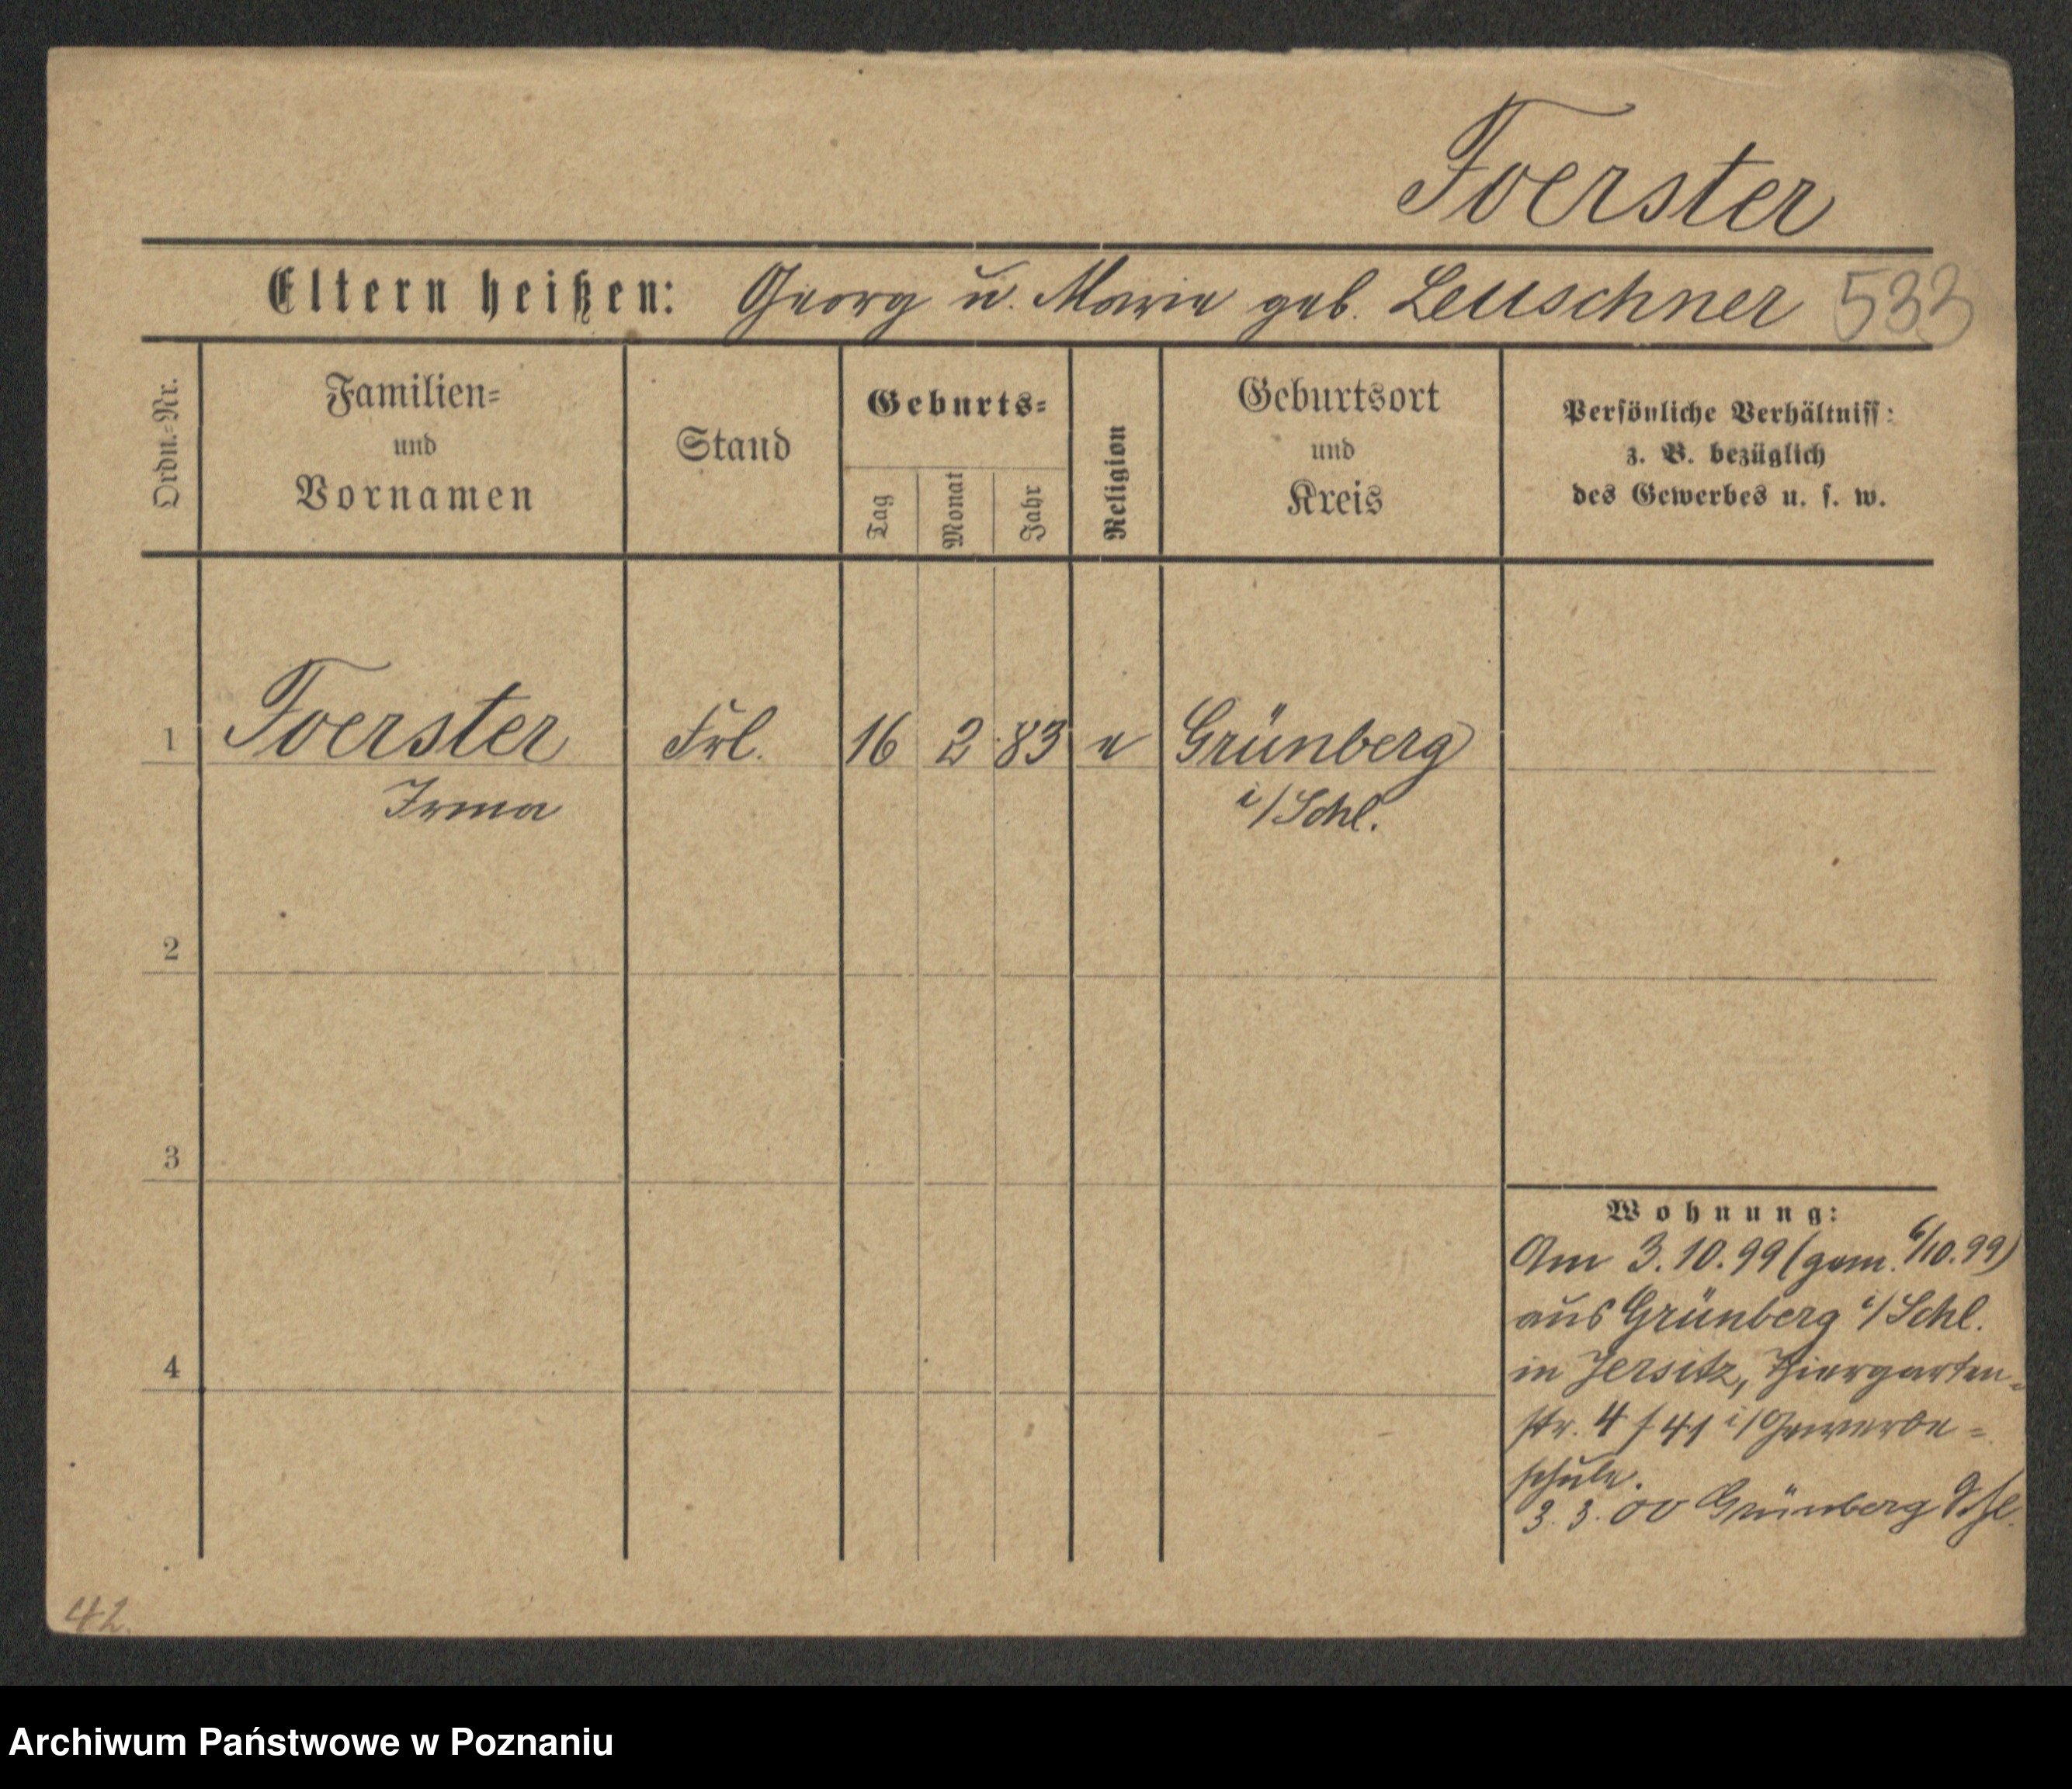 Foerster
Eltern heißen: Georg u. Marie geb. Leuschner 533
Ordn.-Nr.
Familien-
und
Vornamen
Stand
Geburts-
Tag
Monat
Jahr
Religion
Geburtsort
und
Kreis
Persönliche Verhältniss:
z. B. bezüglich
des Gewerbes u. s. w.
1 Foerster Frl. 16 2 83 e Grünberg
Irma i/Schl.
2
3
4
Wohnung:
Am 3.10.99 (gem. 6/10.99)
aus Grünberg i/Schl.
in Jersitz, Thiergarten-
str. 4 f 41 i/Gewerbe-
schule.
3. 3. 00 Grünberg Schl.
42.
Archiwum Państwowe w Poznaniu